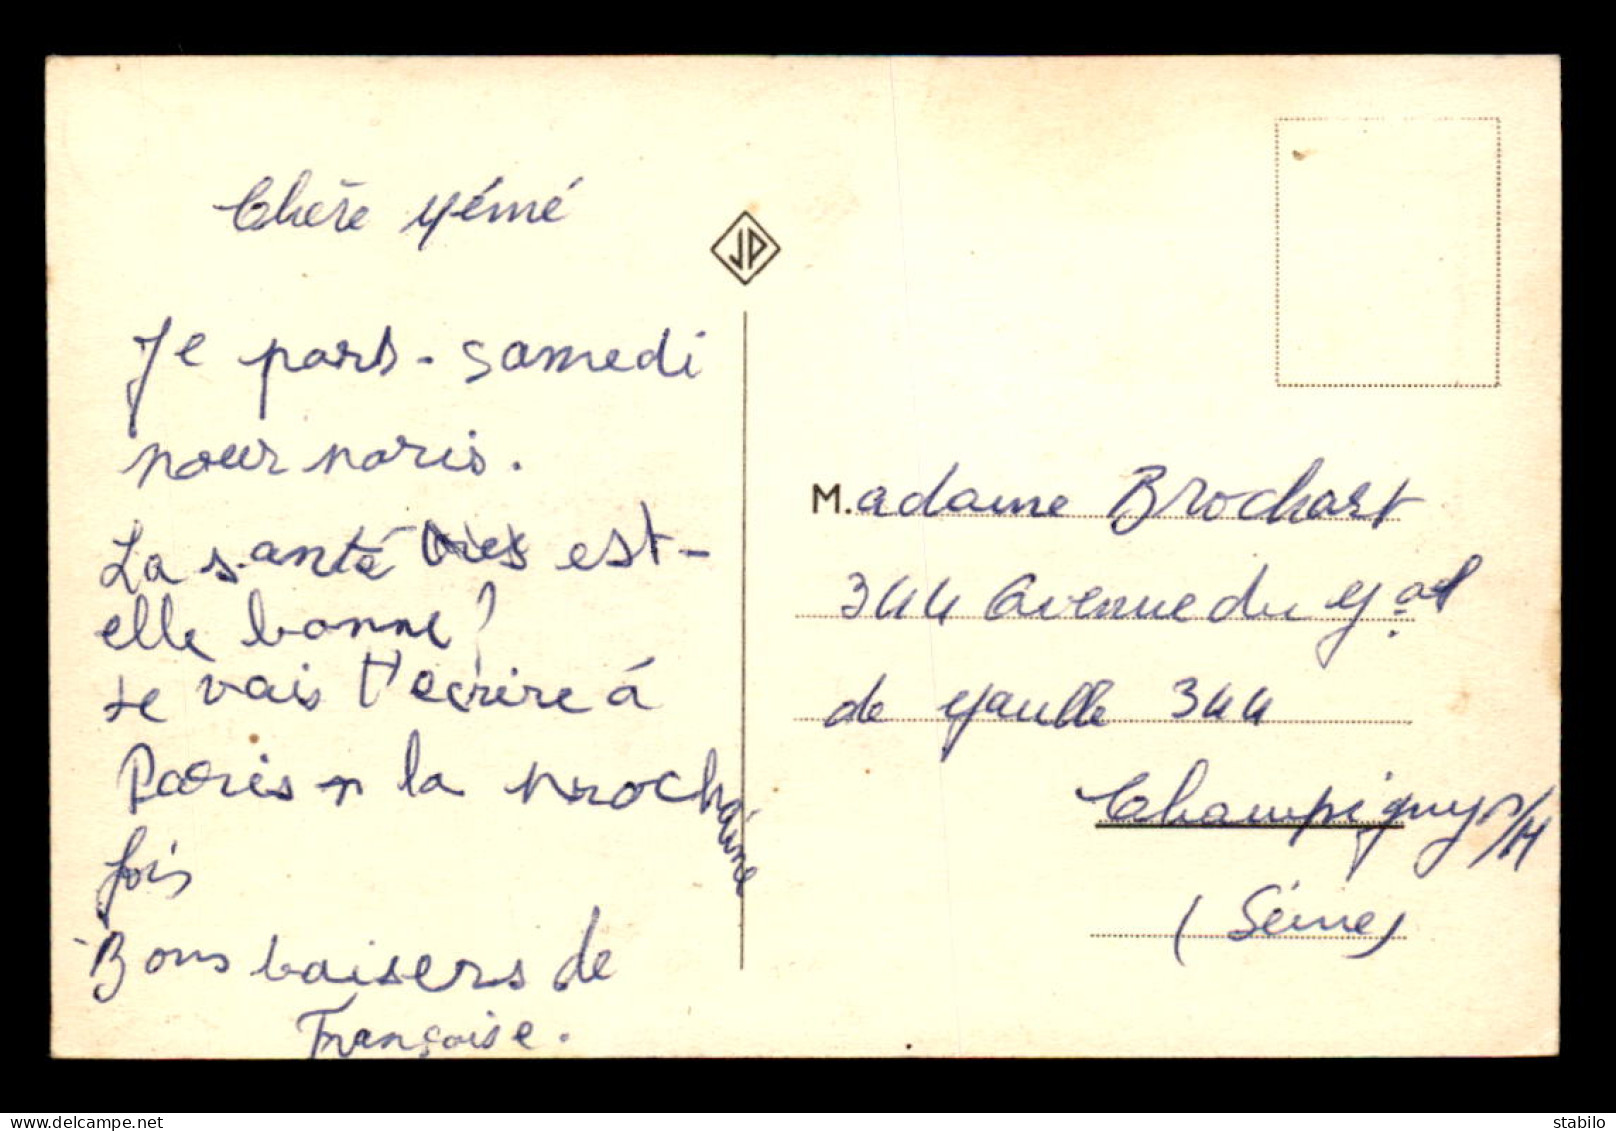 Chère Mémé
Je pars - samedi
pour Paris.
La santé est-
elle bonne ?
Je vais t'ecrire à
Paris la prochaine
fois
Bons baisers de
Françoise.
JP
M.adame Brochart
344 Avenue du Gal
de Gaulle 344
Champigny s/M
(Seine)
delcampe.net
stabilo